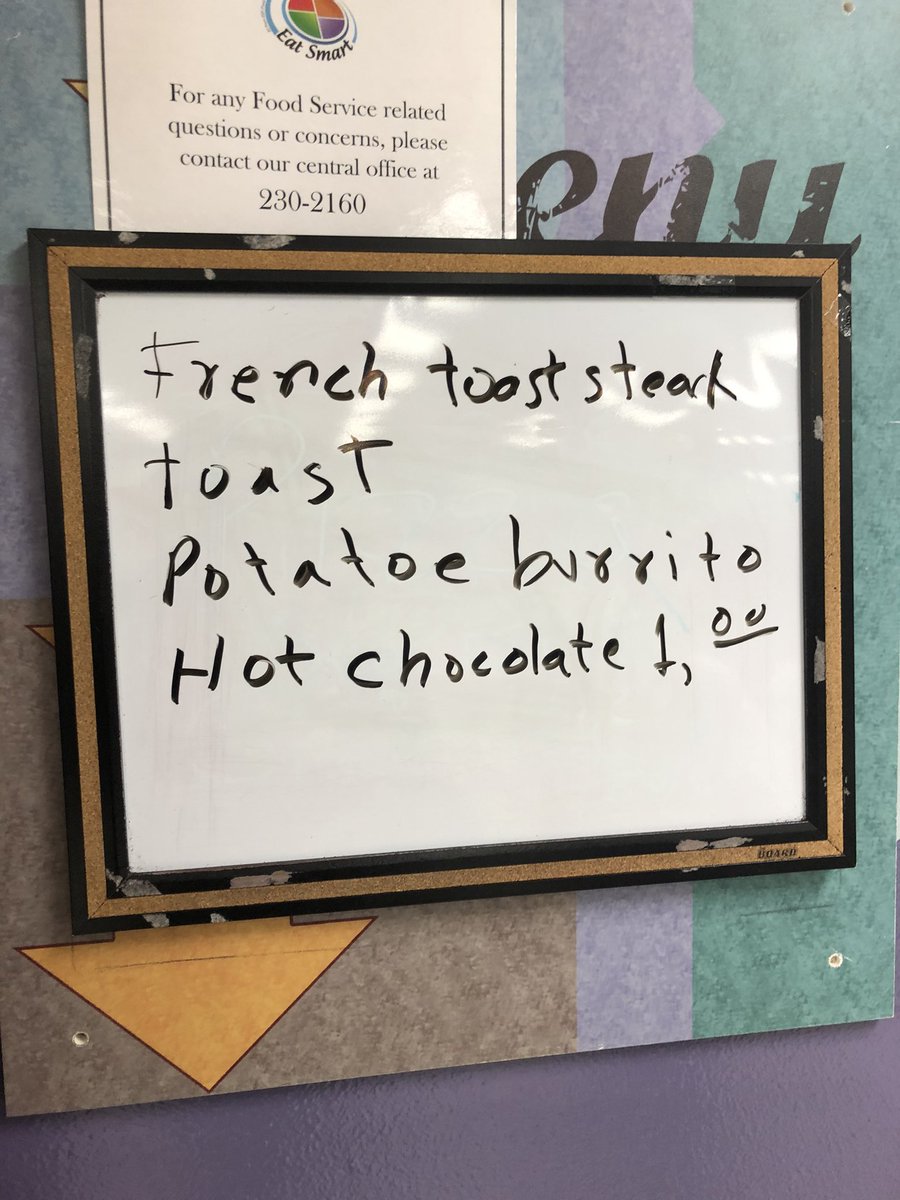 Eat Smart
For any Food Service related
questions or concerns, please
contact our central office at
230-2160
enu
French toast steack
toast
Potatoe burrito
Hot chocolate 1,00
BOARD